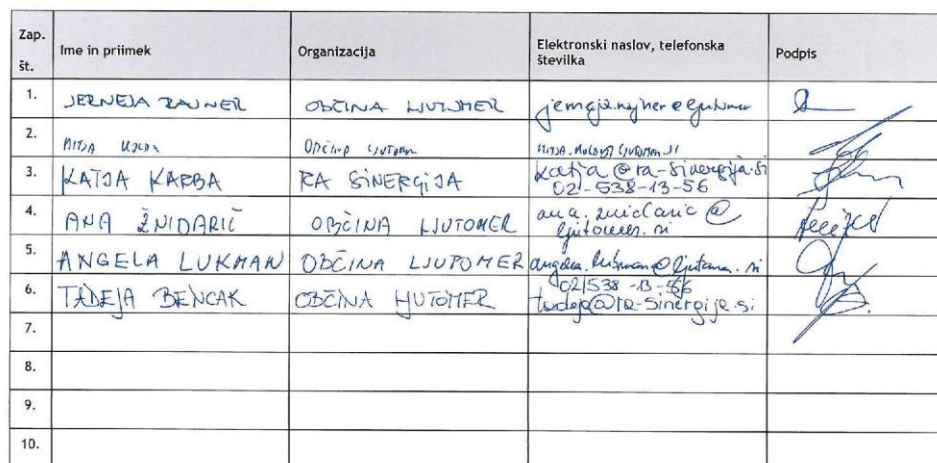 Zap. št. Ime in priimek Organizacija Elektronski naslov, telefonska številka Podpis
1. JERNEJA OBČINA LJUTOMER
2. MITJA OBČINA LJUTOMER
3. KATJA KARBA RA SINERGIJA katja@ra-sinergija.si
02-538-13-56
4. ANA ŽNIDARIČ OBČINA LJUTOMER ana.znidaric@
ljutomer.si
5. ANGELA LUKMAN OBČINA LJUTOMER angela.lukman@ljutomer.si
6. TADEJA BENCAK OBČINA LJUTOMER 02/538-13-56
tadeja@ra-sinergija.si
7.
8.
9.
10.